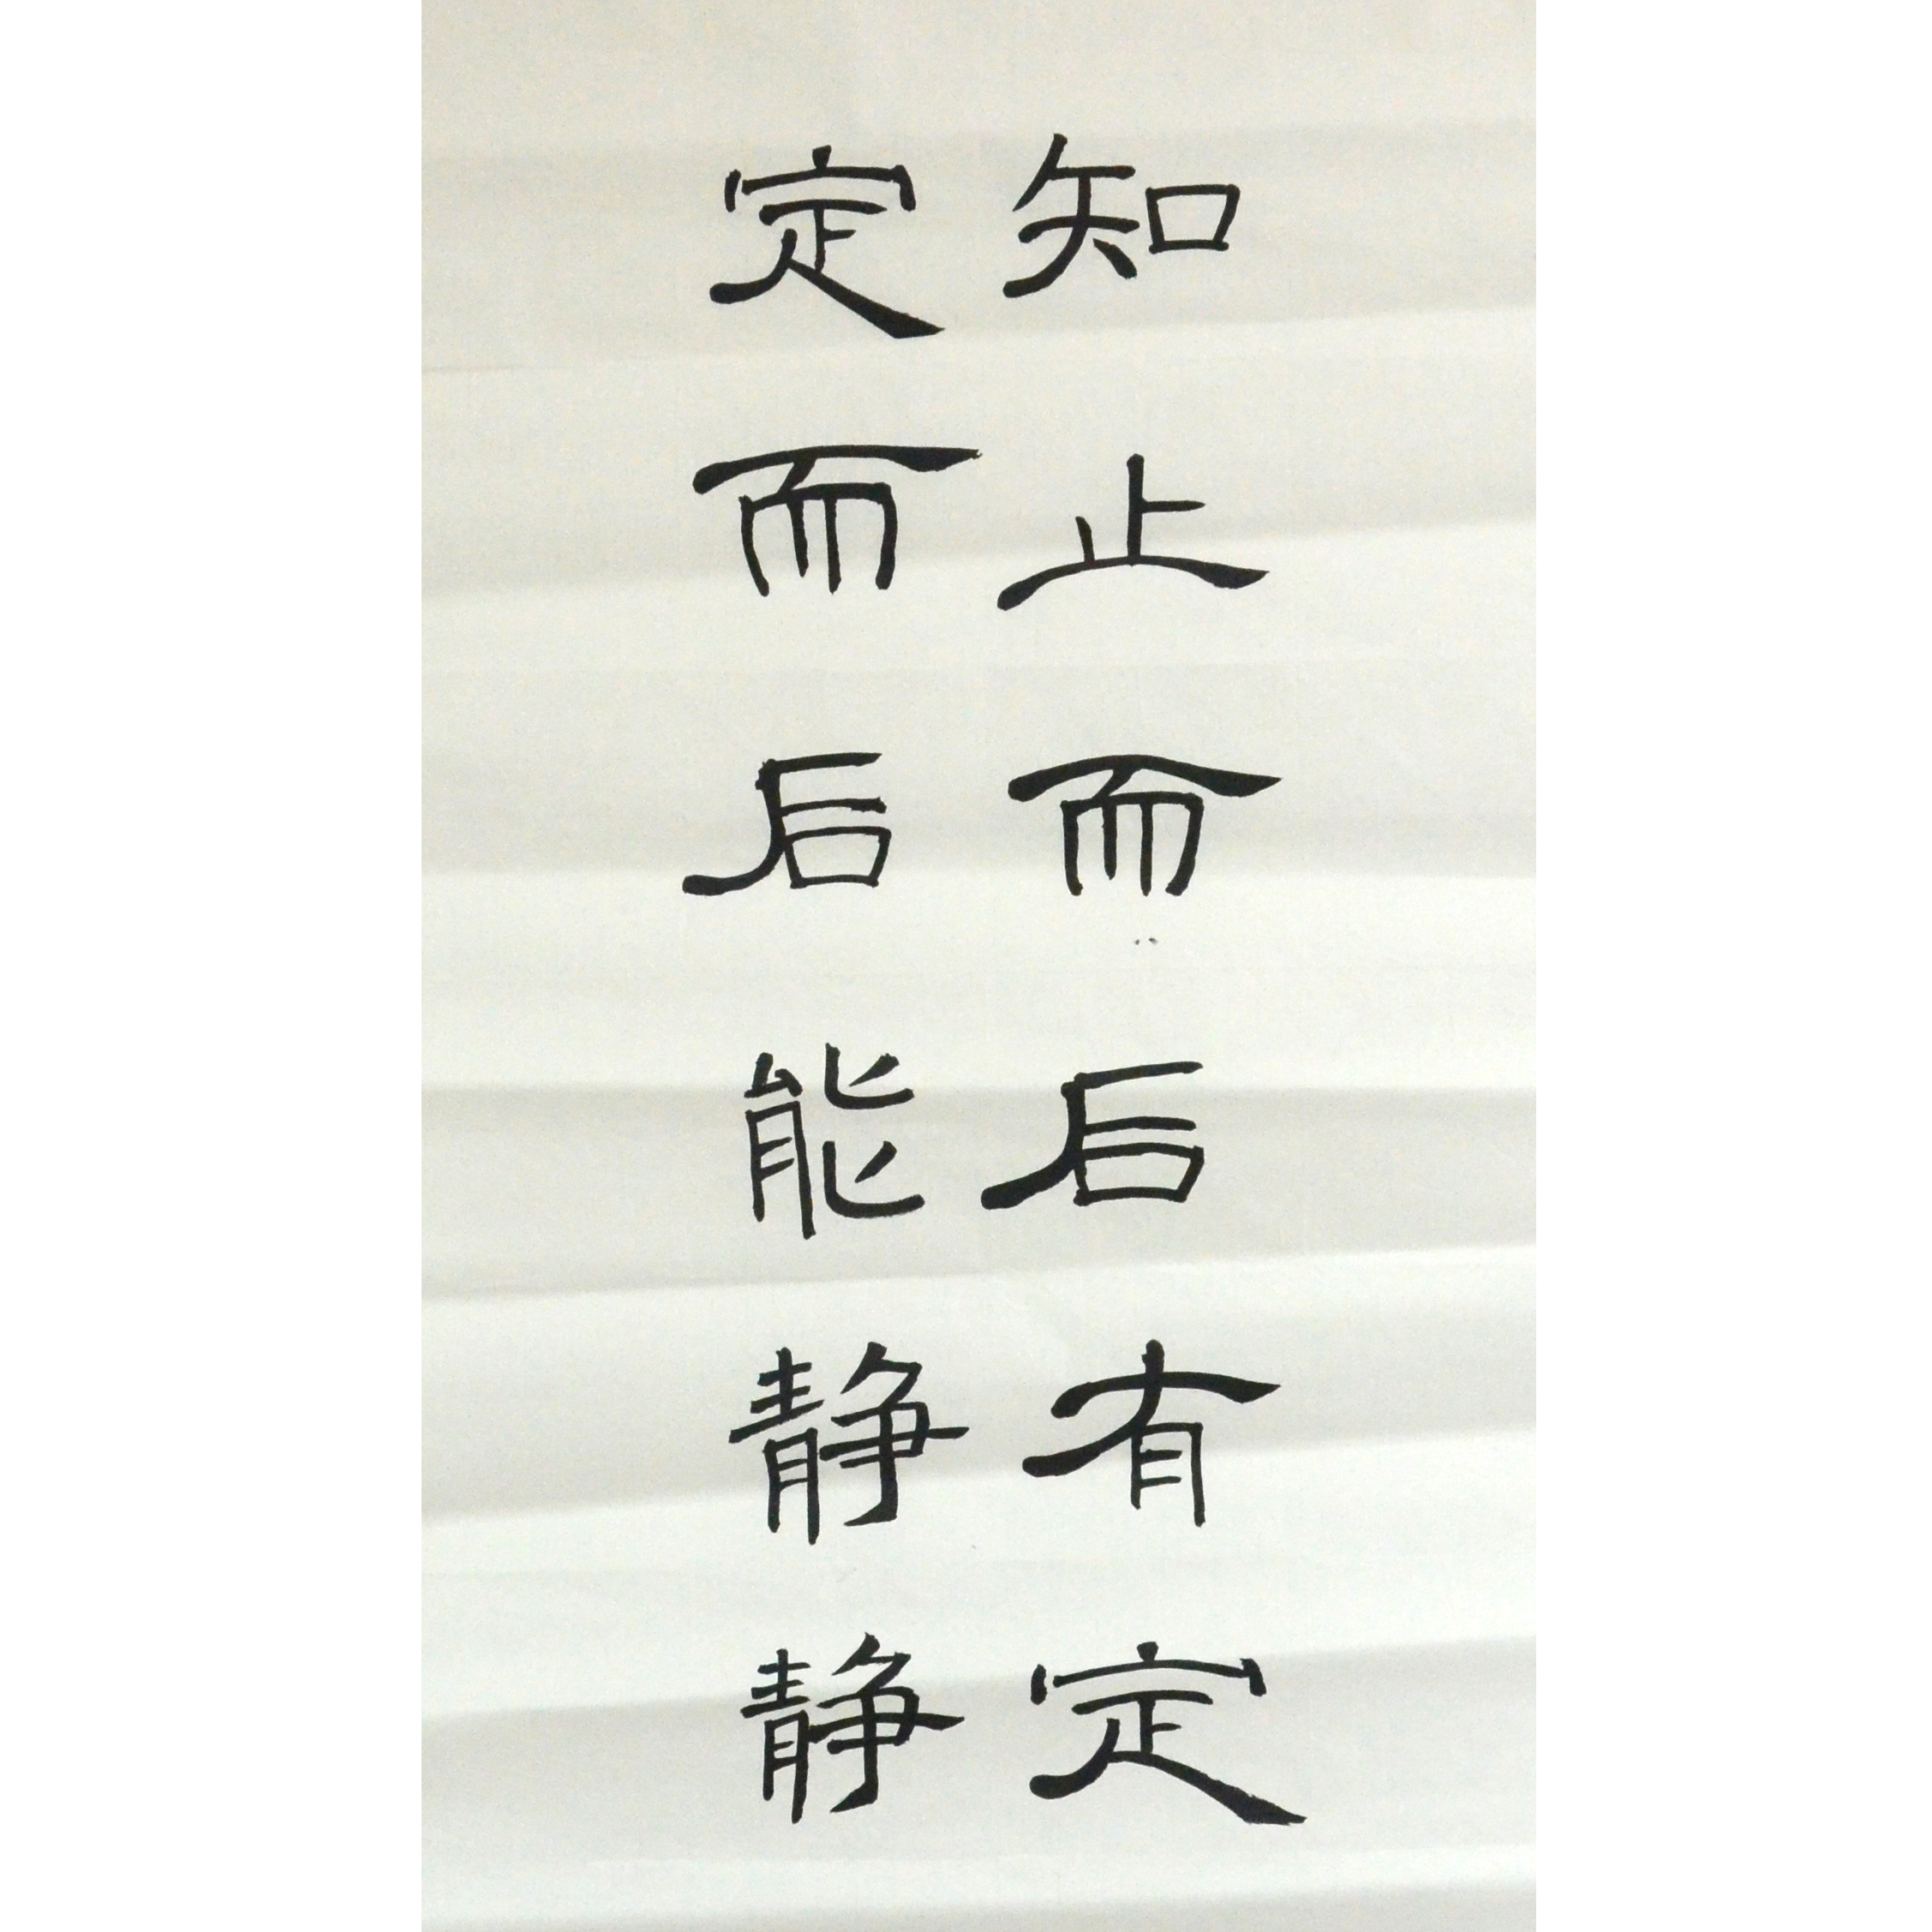 知止而后有定
定而后能静静